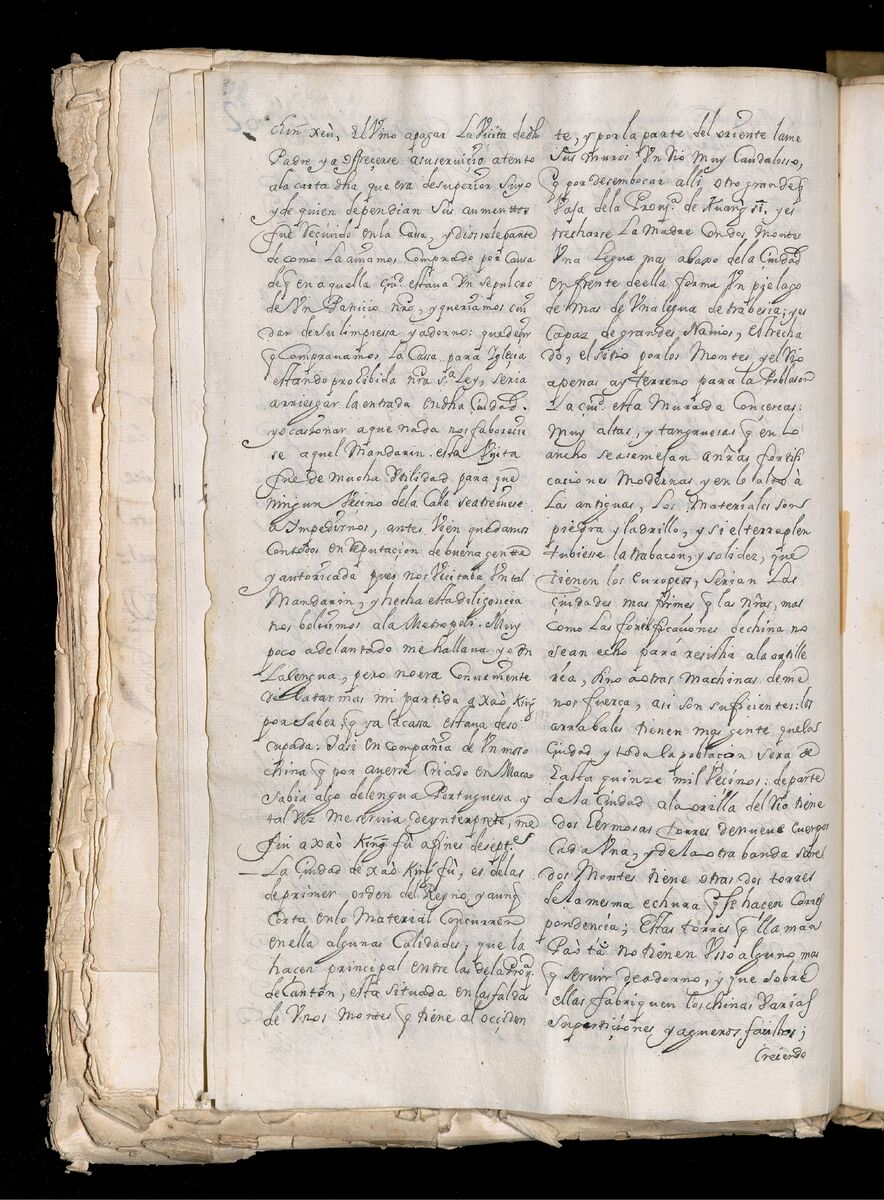 chiñ xeù, El Vino apagar La Visita dedho
Padre y a offrecerse asuservicio atento
ala carta dha que era desuperior suyo
y de quien dependian sus aumentos
fue Segundo en la Cassa, y diossele parte
de como La aviamos Comprado por Causa
de q en aquella ciud estava Vn sepulcro
de Vn Patricio nro, y queriamos cui
dar de Su limpiessa y adorno: que decir
q Compravamos La Cassa para Iglesia
estando prohibida nra Sta Ley, seria
arriesgar la entrada en dha Ciudad.
y ocassionar a que nada nos faborecie
se aquel Mandarin. esta Visita
fue de mucha Vtilidad para que
Ningun Vesino dela Calle seatreviese
a Impedirnos, antes Vien quedamos
Con todos en reputacion de buena gentte
y autoricada pues nos Vicitaba Vn tal
Mandarin, y hecha esta diligencia
nos bolvimos ala Metropoli. Muy
poco adelantado me hallava yo en
La lengua, pero no era Conveniente
dilatar mas mi partida a xaò King
por saber, q ya la cassa estava deso
cupada: I asi en compañia de Vn moso
china q por averse Criado en Macao
Sabia algo de lengua Portuguesa y
tal Vez me servia de ynterprete, me
fui a xaò King fù afines de septe
La Ciudad de xaò King fù, es delas
de primer orden del Reyno, y aunq
Corta en lo Material Concurren
en ella algunas Calidades, que la
hacen principal entre las dela Prova
de Canton, esta situada en las faldas
de Vnos Montes q tiene al occiden
te, y por la parte del oriente lame
sus muros Vn Rio muy Caudalosso,
q por desembocar alli otro grande q
Vaja dela Prova de Kuang si, y es
trecharse La Madre con dos Montes
Vna Legua mas abaxo dela Ciudad
en frente de ella forma Vn pielago
de mas de Vna legua de trabesia; y es
Capaz de grandes Navios, estrecha
do, el sitio por los Montes y el Rio
apenas ay terreno para la Poblason
La ciud esta Murada Con cercas:
Muy altas, y tan gruesas q en lo
ancho se asemejan anras fortifi
caciones Modernas y en lo alto à
Las antiguas, Los Materiales son
piedra y ladrillo, y si el terraplen
tubiesse la trabacon, y solidez, que
tienen los Europeos, serian Las
Ciudades mas firmes q las nras, mas
como Las fortificaciones de china no
sean echo para resistir ala artille
ria, sino à otras Machinas de me
nos fuerca, asi son sufficientes: los
arrabales tienen mas gente que la
Ciudad y toda la poblacion sera de
hasta quinze mil Vecinos: de parte
de la Ciudad ala orilla del Rio tiene
dos hermosas torres de nueve Cuerpos
Cada Vna, y de la otra banda sobre
dos Montes tiene otras dos torres
de la mesma echura q se hacen Corres
pondencia; Estas torres q llaman
Paò tà no tienen Vsso alguno mas
q servir de adorno, y que sobre
ellas fabriquen los chinas Varias
supersticiones y agueros faulsos;
Creiendo